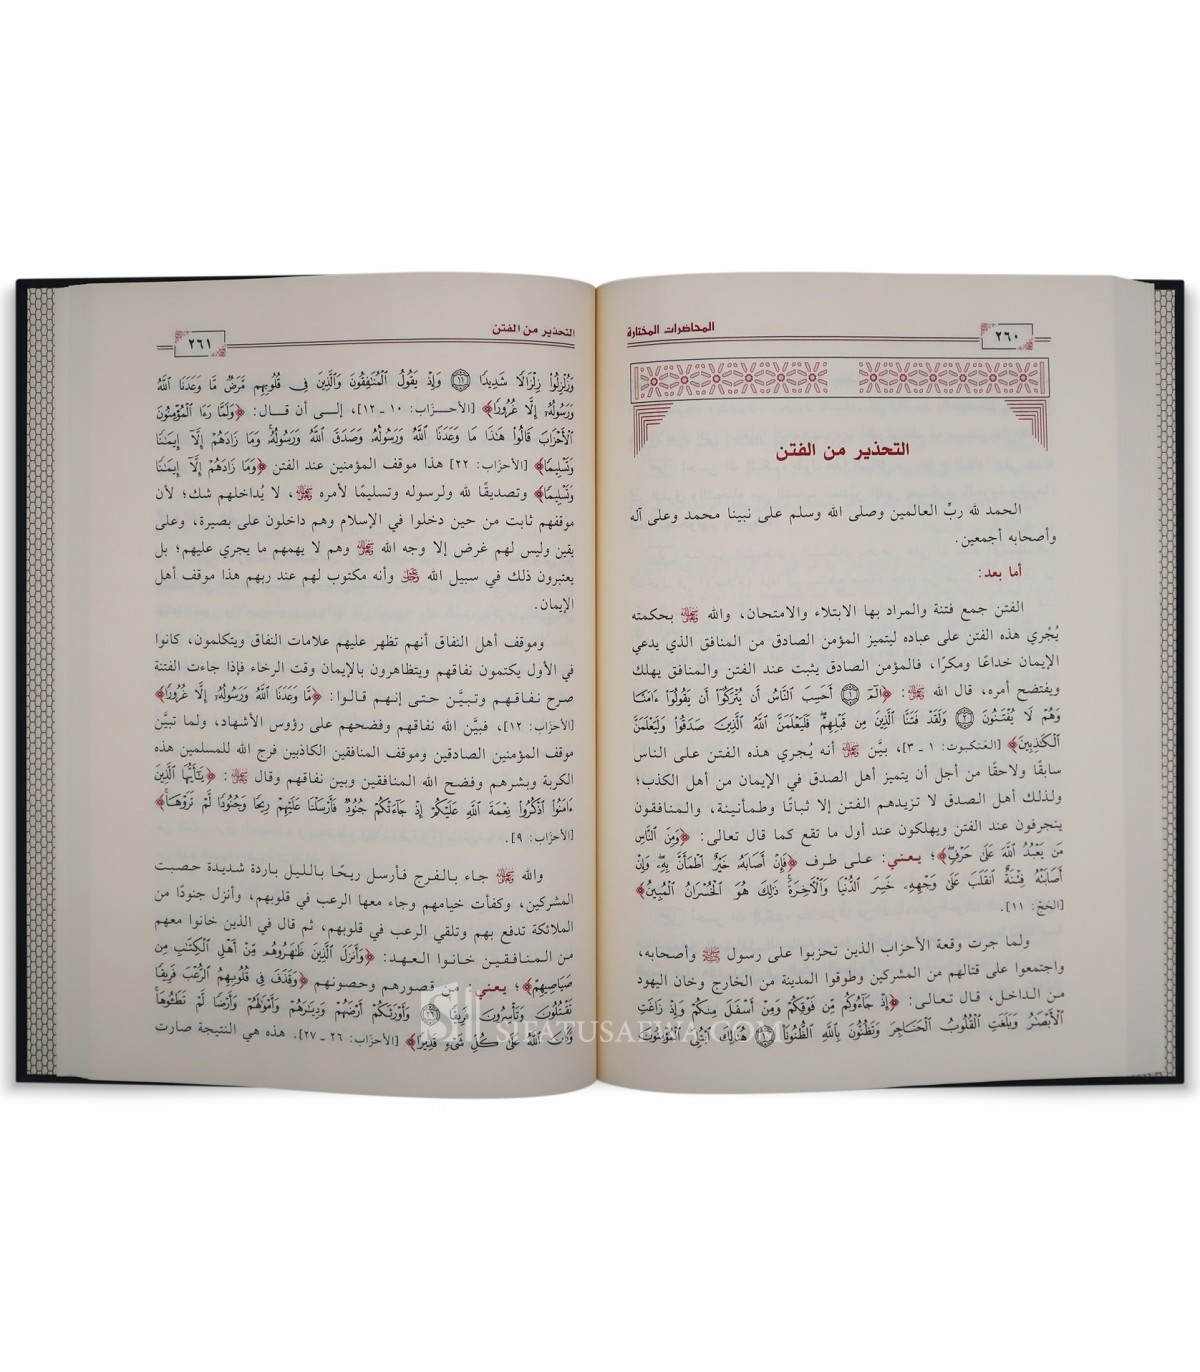 المحاضرات المختارة
٢٦٠
التحذير من الفتن
الحمد لله ربِّ العالمين وصلى الله وسلم على نبينا محمد وعلى آله
وأصحابه أجمعين.
أما بعد:
الفتن جمع فتنة والمراد بها الابتلاء والامتحان، والله ﷻ بحكمته
يُجْري هذه الفتن على عباده ليتميز المؤمن الصادق من المنافق الذي يدعي
الإيمان خداعًا ومكرًا، فالمؤمن الصادق يثبت عند الفتن والمنافق يهلك
ويفتضح أمره، قال الله ﷻ: ﴿الٓمٓ ١ أَحَسِبَ ٱلنَّاسُ أَن يُتۡرَكُوٓاْ أَن يَقُولُوٓاْ ءَامَنَّا
وَهُمۡ لَا يُفۡتَنُونَ ٢ وَلَقَدۡ فَتَنَّا ٱلَّذِينَ مِن قَبۡلِهِمۡۖ فَلَيَعۡلَمَنَّ ٱللَّهُ ٱلَّذِينَ صَدَقُواْ وَلَيَعۡلَمَنَّ
ٱلۡكَٰذِبِينَ﴾ [العَنكبوت: ١ ـ ٣]، بيَّن ﷻ أنه يُجري هذه الفتن على الناس
سابقًا ولاحقًا من أجل أن يتميز أهل الصدق في الإيمان من أهل الكذب؛
ولذلك أهل الصدق لا تزيدهم الفتن إلا ثباتًا وطمأنينة، والمنافقون
ينجرفون عند الفتن ويهلكون عند أول ما تقع كما قال تعالى: ﴿وَمِنَ ٱلنَّاسِ
مَن يَعۡبُدُ ٱللَّهَ عَلَىٰ حَرۡفٖۖ﴾؛ يعني: على طرف ﴿فَإِنۡ أَصَابَهُۥ خَيۡرٌ ٱطۡمَأَنَّ بِهِۦۖ وَإِنۡ
أَصَابَتۡهُ فِتۡنَةٌ ٱنقَلَبَ عَلَىٰ وَجۡهِهِۦ خَسِرَ ٱلدُّنۡيَا وَٱلۡأٓخِرَةَۚ ذَٰلِكَ هُوَ ٱلۡخُسۡرَانُ ٱلۡمُبِينُ﴾
[الحَجّ: ١١].
ولما جرت وقعة الأحزاب الذين تحزبوا على رسول ﷺ وأصحابه،
واجتمعوا على قتالهم من المشركين وطوقوا المدينة من الخارج وخان اليهود
من الداخل، قال تعالى: ﴿إِذۡ جَآءُوكُم مِّن فَوۡقِكُمۡ وَمِنۡ أَسۡفَلَ مِنكُمۡ وَإِذۡ زَاغَتِ
ٱلۡأَبۡصَٰرُ وَبَلَغَتِ ٱلۡقُلُوبُ ٱلۡحَنَاجِرَ وَتَظُنُّونَ بِٱللَّهِ ٱلظُّنُونَا۠ ١٠ هُنَالِكَ ٱبۡتُلِيَ ٱلۡمُؤۡمِنُونَ
التحذير من الفتن
٢٦١
وَزُلۡزِلُواْ زِلۡزَالٗا شَدِيدٗا ١١ وَإِذۡ يَقُولُ ٱلۡمُنَٰفِقُونَ وَٱلَّذِينَ فِي قُلُوبِهِم مَّرَضٞ مَّا وَعَدَنَا ٱللَّهُ
وَرَسُولُهُۥٓ إِلَّا غُرُورٗا﴾ [الأحزَاب: ١٠ ـ ١٢]، إلى أن قال: ﴿وَلَمَّا رَءَا ٱلۡمُؤۡمِنُونَ
ٱلۡأَحۡزَابَ قَالُواْ هَٰذَا مَا وَعَدَنَا ٱللَّهُ وَرَسُولُهُۥ وَصَدَقَ ٱللَّهُ وَرَسُولُهُۥۚ وَمَا زَادَهُمۡ إِلَّآ إِيمَٰنٗا
وَتَسۡلِيمٗا﴾ [الأحزَاب: ٢٢] هذا موقف المؤمنين عند الفتن ﴿وَمَا زَادَهُمۡ إِلَّآ إِيمَٰنٗا
وَتَسۡلِيمٗا﴾ وتصديقًا لله ولرسوله وتسليمًا لأمره ﷻ، لا يُداخلهم شك؛ لأن
موقفهم ثابت من حين دخلوا في الإسلام وهم داخلون على بصيرة، وعلى
يقين وليس لهم غرض إلا وجه الله ﷻ وهم لا يهمهم ما يجري عليهم؛ بل
يعتبرون ذلك في سبيل الله وأنه مكتوب لهم عند ربهم هذا موقف أهل
الإيمان.
وموقف أهل النفاق أنهم تظهر عليهم علامات النفاق ويتكلمون، كانوا
في الأول يكتمون نفاقهم ويتظاهرون بالإيمان وقت الرخاء فإذا جاءت الفتنة
صرح نفاقهم وتبيَّن حتى إنهم قالوا: ﴿مَّا وَعَدَنَا ٱللَّهُ وَرَسُولُهُۥٓ إِلَّا غُرُورٗا﴾
[الأحزَاب: ١٢]، فبيَّن الله نفاقهم وفضحهم على رؤوس الأشهاد، ولما تبيَّن
موقف المؤمنين الصادقين وموقف المنافقين الكاذبين فرج الله للمسلمين هذه
الكربة وبشرهم وفضح الله المنافقين وبين نفاقهم وقال ﷻ: ﴿يَٰٓأَيُّهَا ٱلَّذِينَ
ءَامَنُواْ ٱذۡكُرُواْ نِعۡمَةَ ٱللَّهِ عَلَيۡكُمۡ إِذۡ جَآءَتۡكُمۡ جُنُودٞ فَأَرۡسَلۡنَا عَلَيۡهِمۡ رِيحٗا وَجُنُودٗا لَّمۡ تَرَوۡهَاۚ﴾
[الأحزَاب: ٩].
والله ﷻ جاء بالفرج فأرسل ريحًا بالليل باردة شديدة حصبت
المشركين، وكفأت خيامهم وجاء معها الرعب في قلوبهم، وأنزل جنودًا من
الملائكة تدفع بهم وتلقي الرعب في قلوبهم، ثم قال في الذين خانوا معهم
من المنافقين خانوا العهد: ﴿وَأَنزَلَ ٱلَّذِينَ ظَٰهَرُوهُم مِّنۡ أَهۡلِ ٱلۡكِتَٰبِ مِن
صَيَاصِيهِمۡ﴾؛ يعني: من قصورهم وحصونهم ﴿وَقَذَفَ فِي قُلُوبِهِمُ ٱلرُّعۡبَ فَرِيقٗا
تَقۡتُلُونَ وَتَأۡسِرُونَ فَرِيقٗا ٢٦ وَأَوۡرَثَكُمۡ أَرۡضَهُمۡ وَدِيَٰرَهُمۡ وَأَمۡوَٰلَهُمۡ وَأَرۡضٗا لَّمۡ تَطَـُٔوهَاۚ
وَكَانَ ٱللَّهُ عَلَىٰ كُلِّ شَيۡءٖ قَدِيرٗا﴾ [الأحزَاب: ٢٦ ـ ٢٧]. هذه هي النتيجة صارت
SIFATUSAFWA.COM